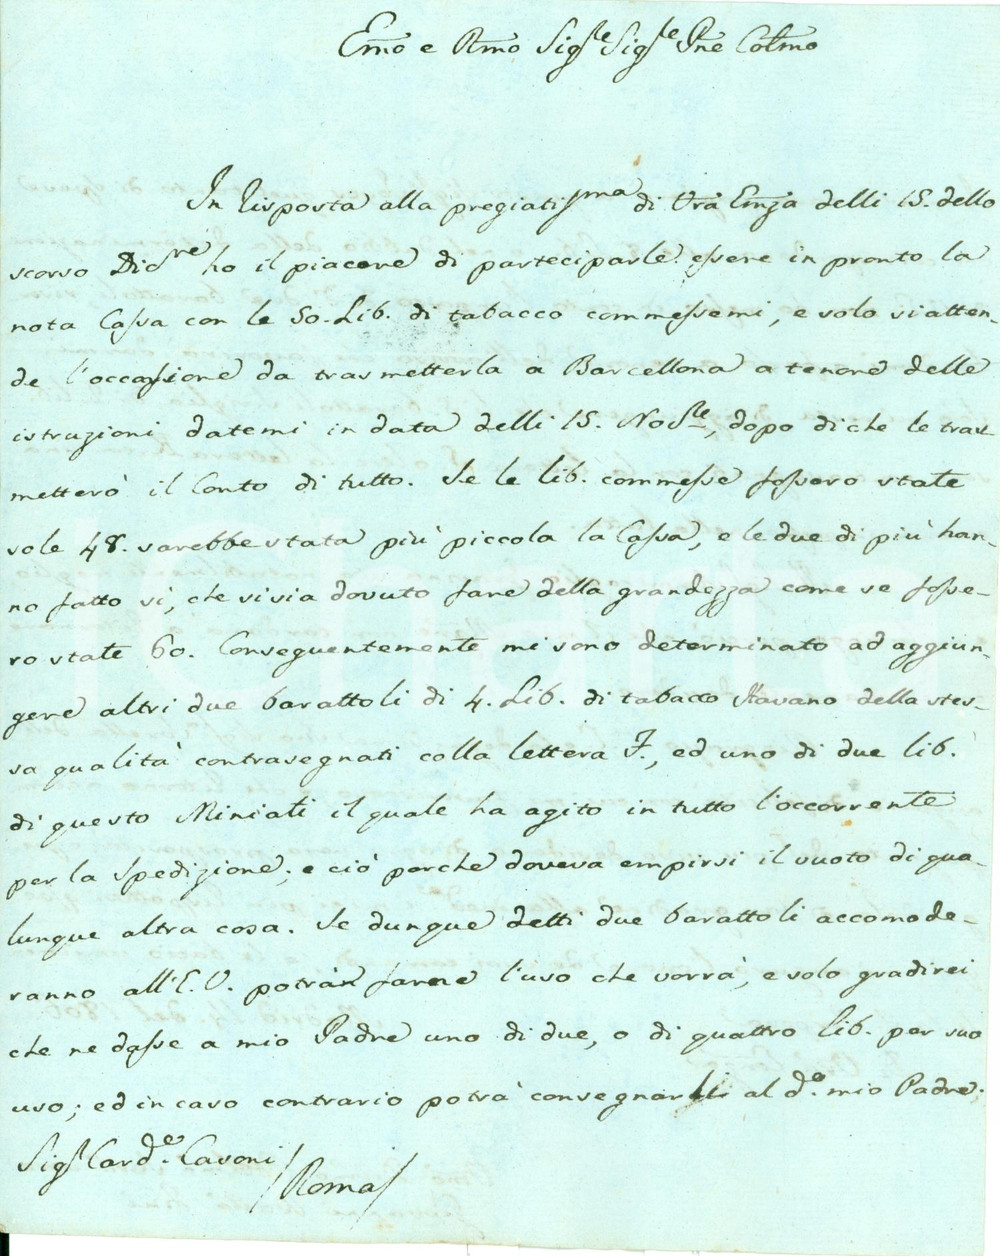 Emo e Rmo Sigre Sigre Pne Colmo
In risposta alla pregiatissma di Vrã Emza delli 15. dello
scorso Dicbre ho il piacere di parteciparle essere in pronto la
nota Cassa con le 50. Lib. di tabacco commessemi, e solo si atten-
de l'occasione da trasmetterla a Barcellona a tenore delle
istruzioni datemi in data delli 15. Nobre, dopo di che le tras-
metterò il Conto di tutto. Se le lib. commesse fossero state
sole 48. sarebbe stata più piccola la Cassa, e le due di più han-
no fatto sì, che si sia dovuto fare della grandezza come se fosse-
ro state 60. Conseguentemente mi sono determinato ad aggiun-
gere altri due barattoli di 4. Lib. di tabacco Avano della stes-
sa qualità contrasegnati colla lettera F., ed uno di due lib.
di questo Miniati il quale ha agito in tutto l'occorrente
per la spedizione; e ciò perche doveva empirsi il vuoto di qua-
lunque altra cosa. Se dunque detti due barattoli accomode-
ranno all'E.V. potrà farne l'uso che vorrà, e solo gradirei
che ne dasse a mio Padre uno di due, o di quattro lib. per suo
uso; ed in caso contrario potrà consegnarli al do. mio Padre;
Sigr Carde. Casoni
/Roma/
iCharta